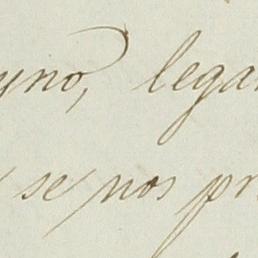 yno, lega
se nos pr